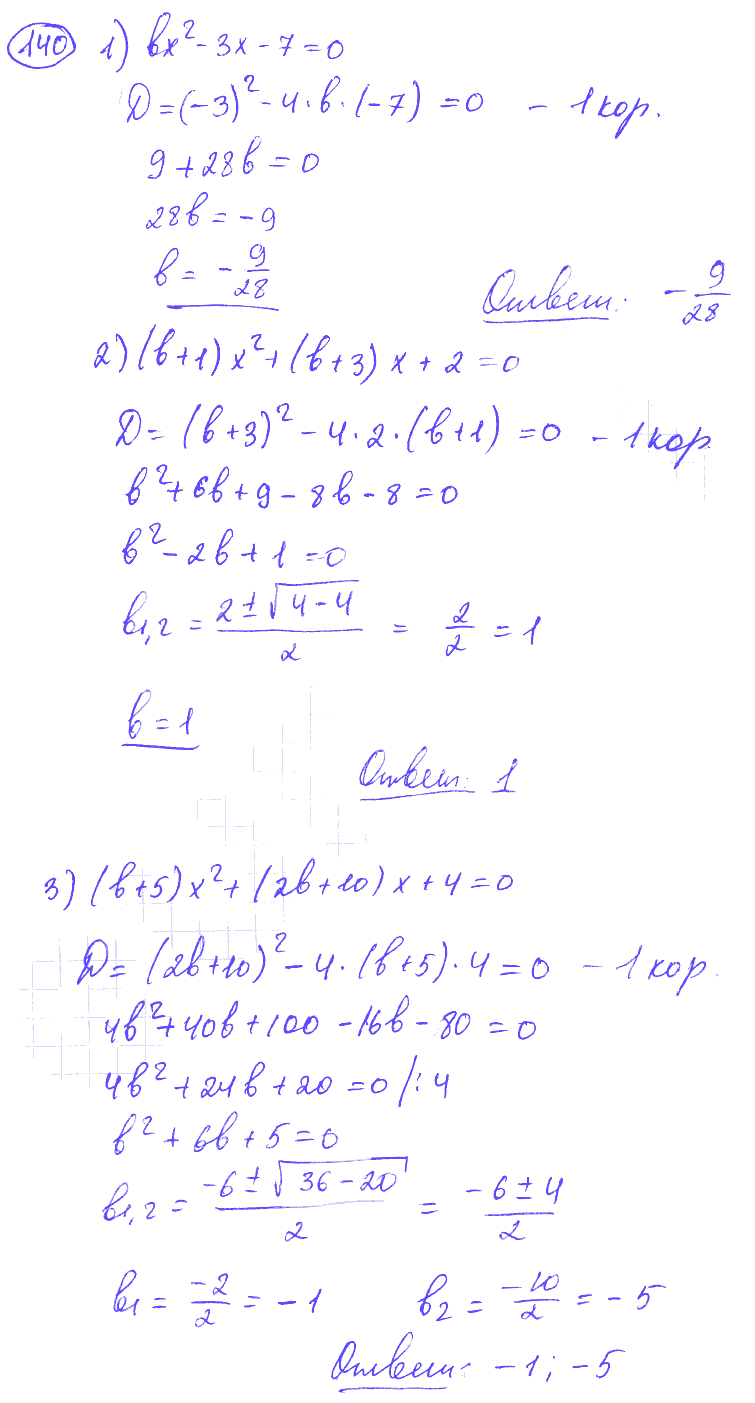 140 1) bx² - 3x - 7 = 0
D = (-3)² - 4·b·(-7) = 0 - 1 кор.
9 + 28b = 0
28b = -9
b = -9/28
Ответ: -9/28
2) (b+1)x² + (b+3)x + 2 = 0
D = (b+3)² - 4·2·(b+1) = 0 - 1 кор.
b² + 6b + 9 - 8b - 8 = 0
b² - 2b + 1 = 0
b1,2 = (2 ± √(4-4))/2 = 2/2 = 1
b = 1
Ответ: 1
3) (b+5)x² + (2b+10)x + 4 = 0
D = (2b+10)² - 4·(b+5)·4 = 0 - 1 кор.
4b² + 40b + 100 - 16b - 80 = 0
4b² + 24b + 20 = 0 /:4
b² + 6b + 5 = 0
b1,2 = (-6 ± √(36-20))/2 = (-6 ± 4)/2
b1 = -2/2 = -1 b2 = -10/2 = -5
Ответ: -1; -5